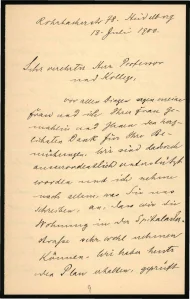 Rohrbacherstr 48. Heidelberg
13. Juli 1900.
Sehr verehrter Herr Professor
und Kollege,
vor allen Dingen sagen meine
Frau und ich, Ihrer Frau Ge-
mahlin und Ihnen den herz-
lichsten Dank für Ihre Be-
mühungen. Wir sind dadurch
ausserordentlich unterstützt
worden und ich nehme
nach allem, was Sie uns
schreiben an, dass wir die
Wohnung in der
strasse sehr wohl nehmen
können. Wir haben heute
den Plan erhalten, geprüft